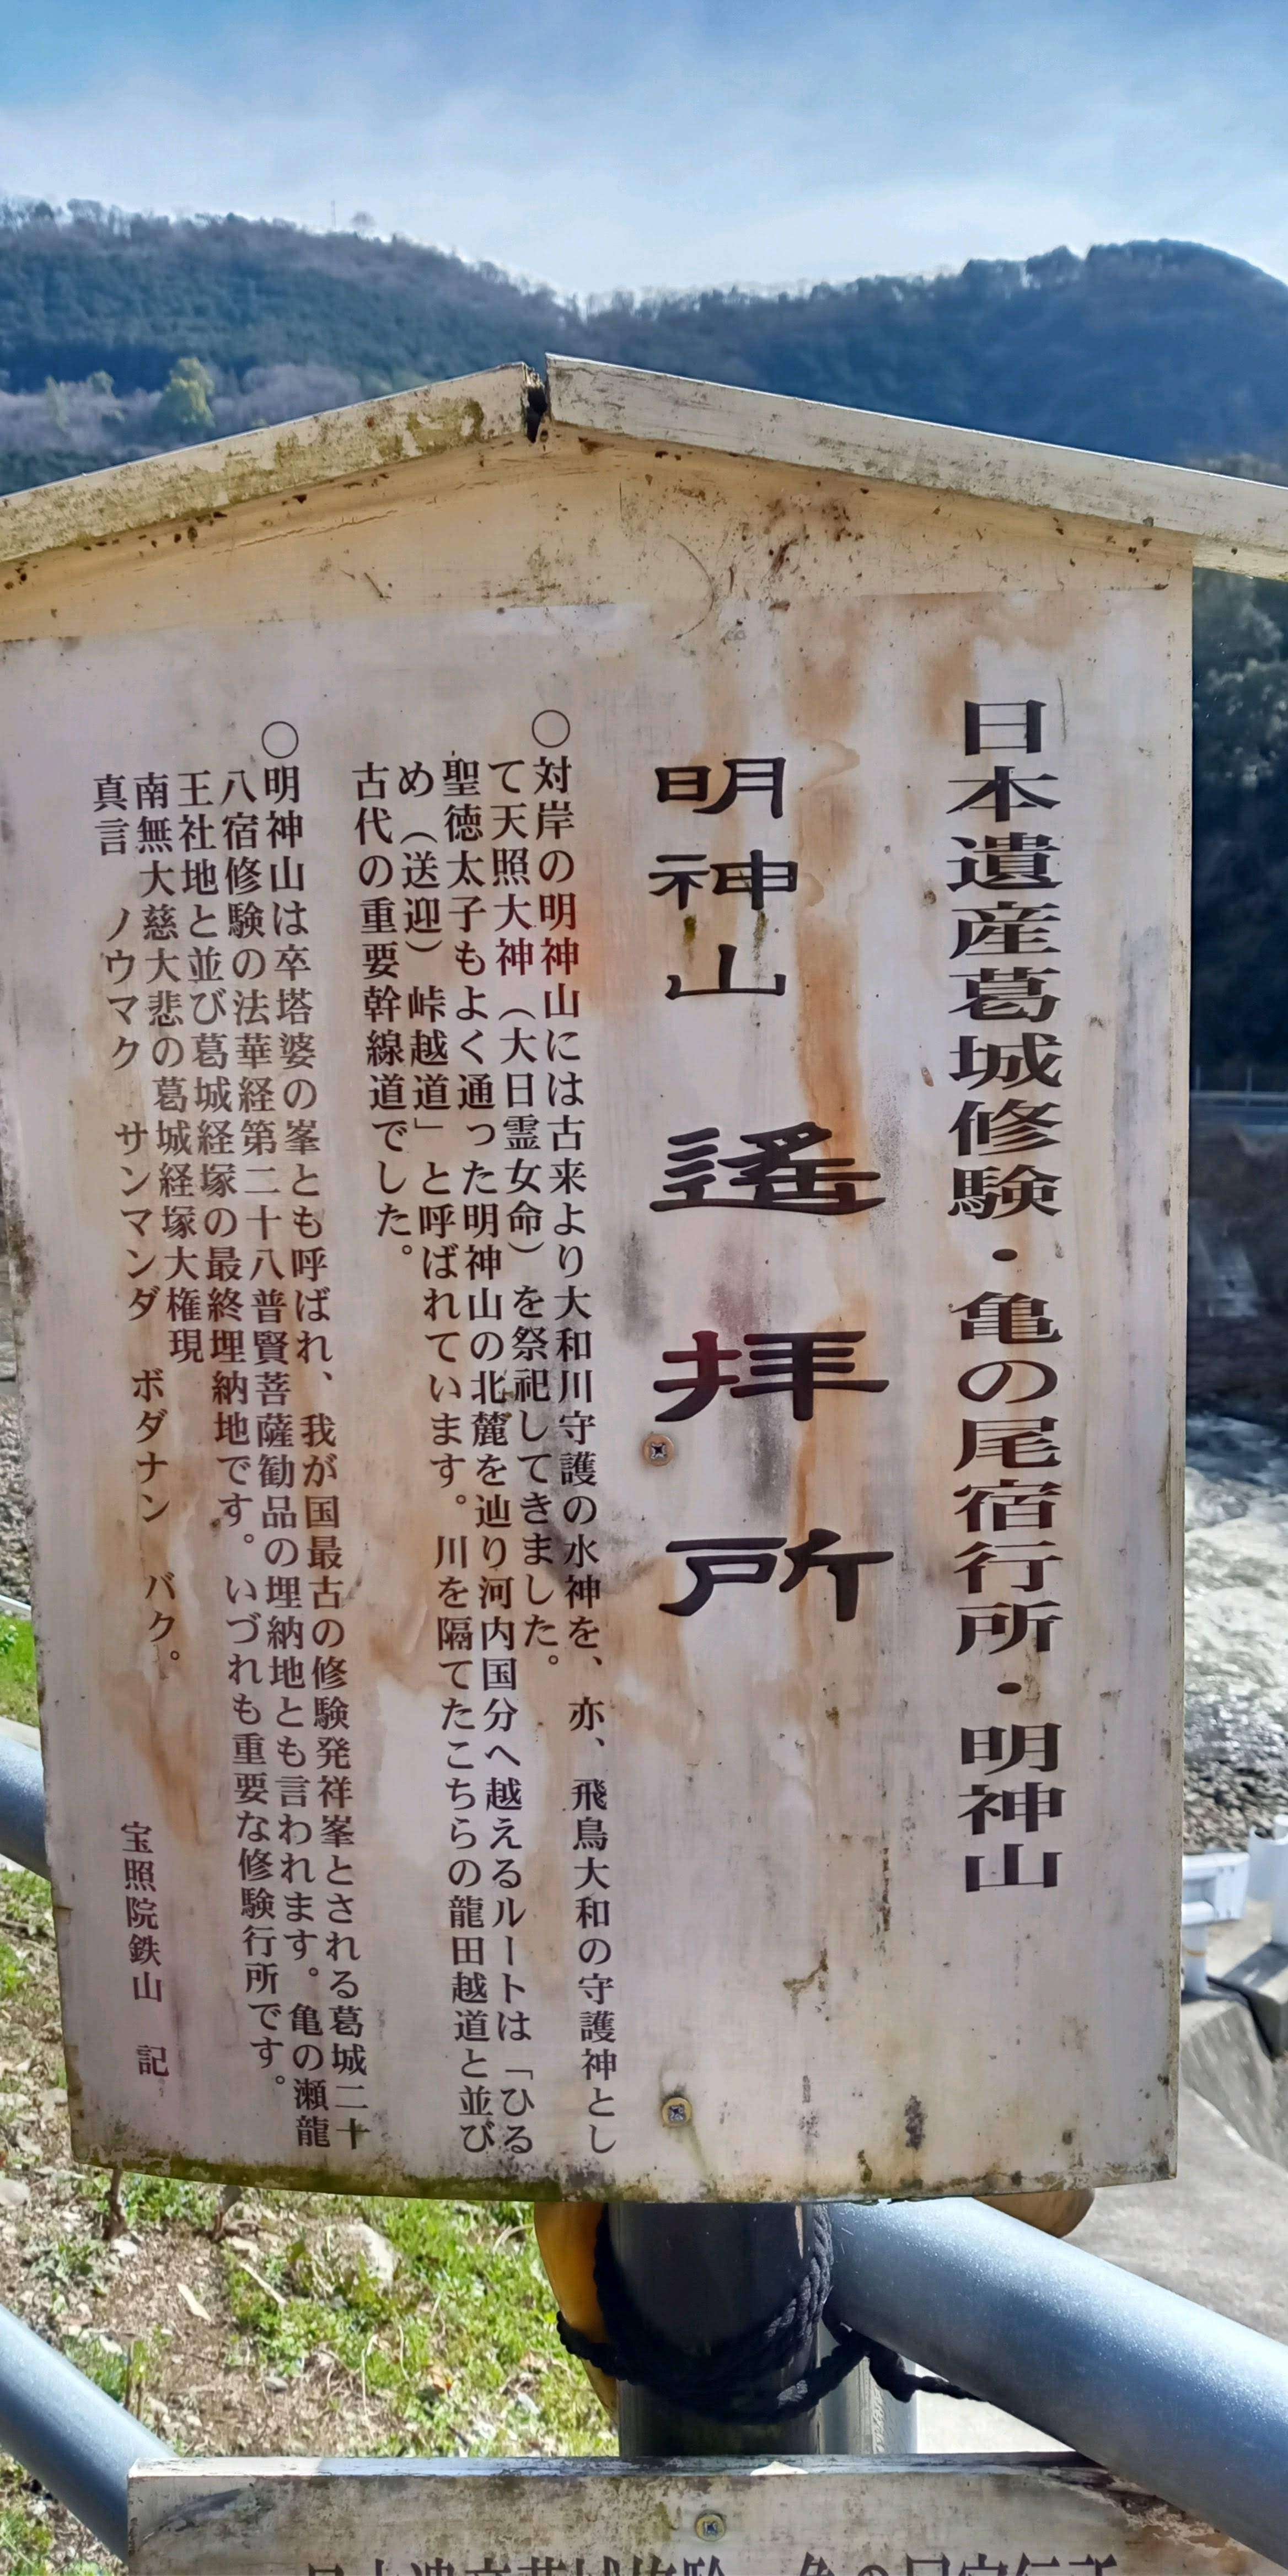 日本遺産葛城修験・亀の尾宿行所・明神山
明神山 遙拝所
〇対岸の明神山には古来より大和川守護の水神を、亦、飛鳥大和の守護神とし
て天照大神（大日霊女命）を祭祀してきました。
聖徳太子もよく通った明神山の北麓を辿り河内国分へ越えるルートは「ひる
め（送迎）峠越道」と呼ばれています。川を隔てたこちらの龍田越道と並び
古代の重要幹線道でした。
〇明神山は卒塔婆の峯とも呼ばれ、我が国最古の修験発祥峯とされる葛城二十
八宿修験の法華経第二十八普賢菩薩勧品の埋納地とも言われます。亀の瀬龍
王社地と並び葛城経塚の最終埋納地です。いづれも重要な修験行所です。
南無大慈大悲の葛城経塚大権現
真言 ノウマク サンマンダ ボダナン バク。
宝照院鉄山 記